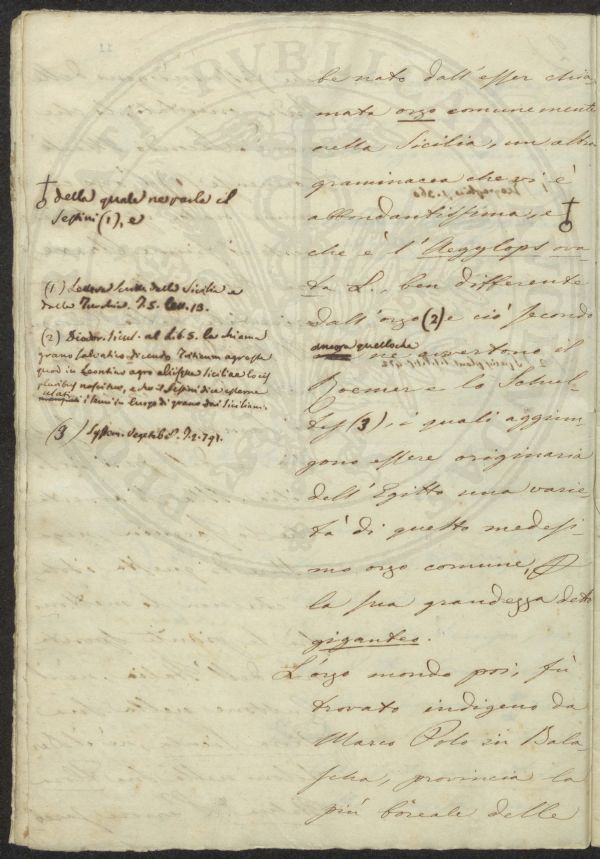 be nato dall'esser chia-
mata orzo comunemente
nella Sicilia, un altra
graminacea che vi è
abbondantissima, e
che è l'Aegylops ova-
ta L., ben differente
dall'orzo (2) e ciò secondo
ancora quelloche
ne avvertono il
Roemer e lo Schul-
tes (3), i quali aggiun-
gono essere originaria
dell'Egitto una varie-
tà di questo medesi-
mo orzo comune,
la sua grandezza detto
giganteo.
L'orzo mondo poi, fù
trovato indigeno da
Marco Polo in Bala-
scha, provincia la
più boreale delle
della quale ne parla il
Sestini (1), e
(1) Lettere scritte dalla Sicilia e
dalla Turchia. T.5. Lett. 13.
(2) Diodor. Sicul. al Lib 5. la chiama
grano salvatico dicendo Triticum agreste
quod in Leontino agro aliisque Siciliae locis
pluribus nascitur, e il Sestini dice esserne
i semi in luogo di grano dai Siciliani.
(3) System. Vegetabil. T.2. 791.
PVBLICAE